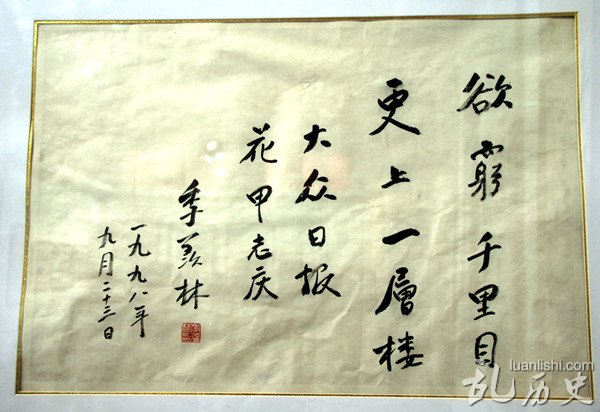 欲窮千里目
更上一層楼
大众日报
花甲志庆
季羡林
一九九八年
九月二十三日
luanlishi.com
乱历史